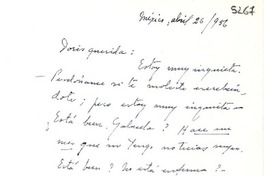 5267
Méjico, abril 26/956
Doris querida:
Estoy muy inquieta.
Perdóname si te molesto escribién-
dote; pero estoy muy inquieta.
¿Está bien Gabriela? Hace un
mes que no tengo noticias suyas.
¿Está bien? ¿No está enferma?